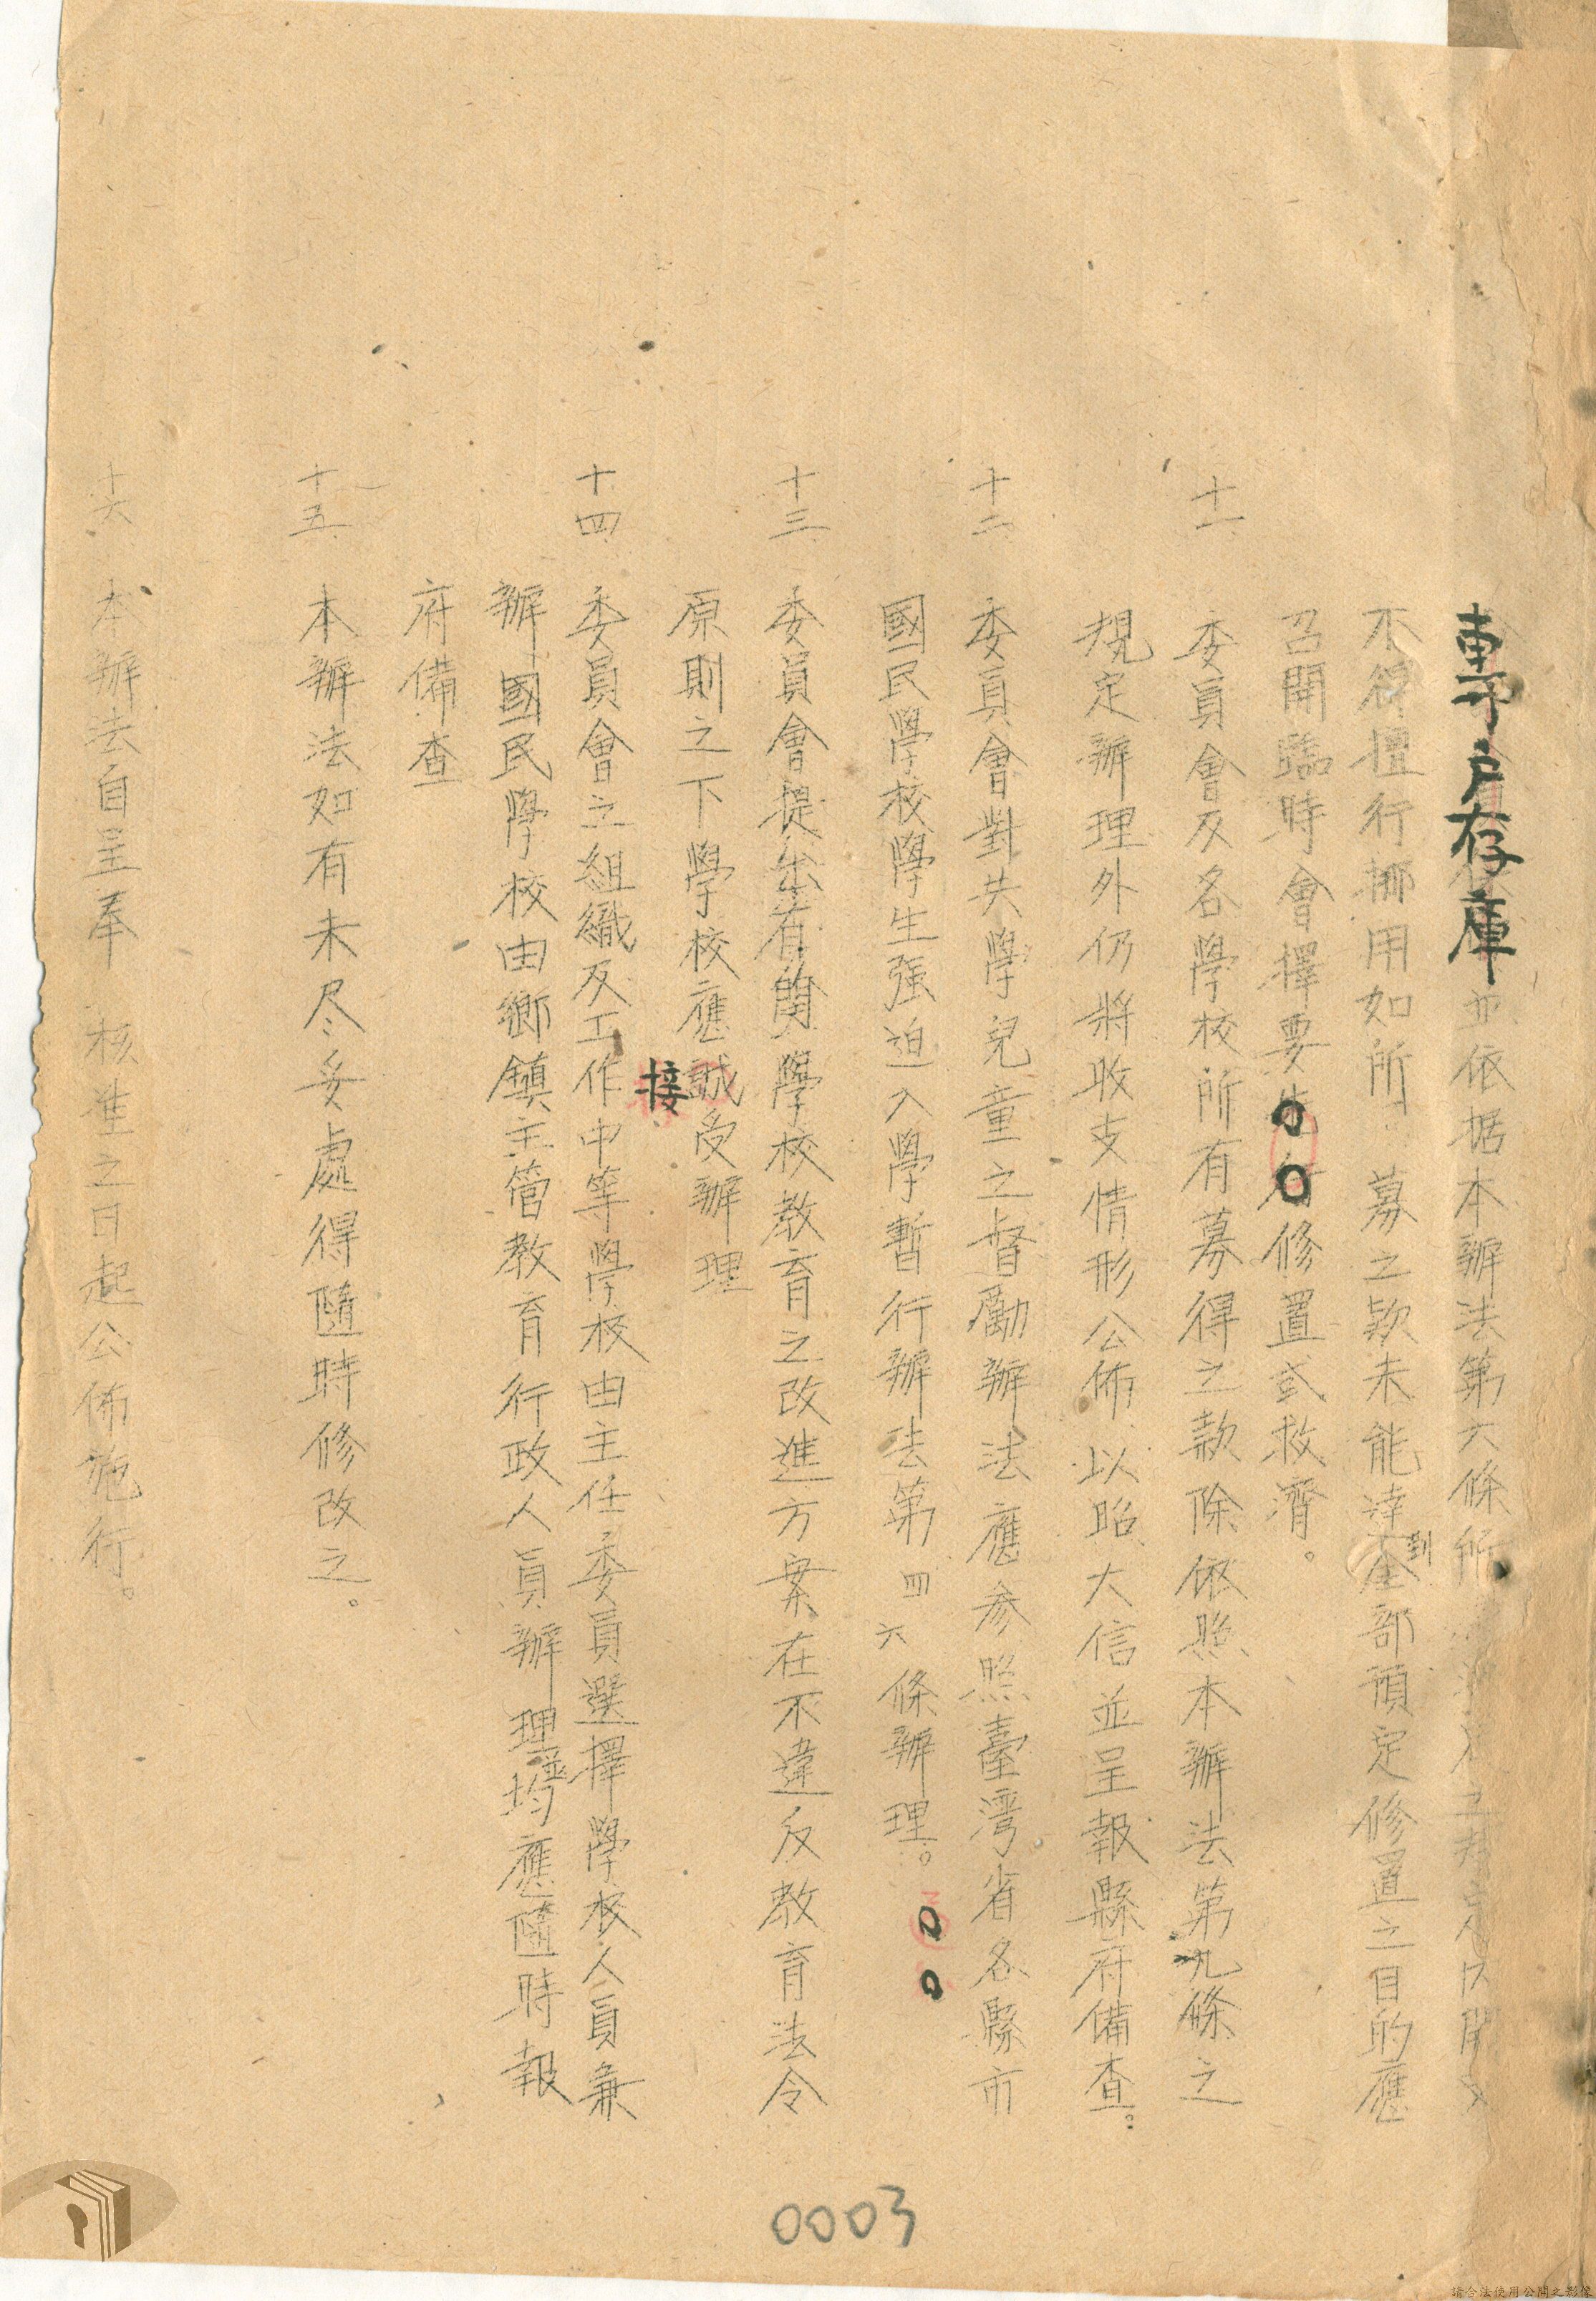 專戶存庫並依据本辦法第六條所
不得擅行挪用如所募之款未能達到全部預定修置之目的應
召開臨時會擇要修置或救濟。
十一 委員會及各學校所有募得之款除依照本辦法第九條之
規定辦理外仍將收支情形公佈以昭大信並呈報縣府備查。
十二 委員會對失學兒童之督勵辦法應參照臺灣省各縣市
國民學校學生强迫入學暫行辦法第四六條辦理。
十三 委員會提出有關學校教育之改進方案在不違反教育法令
原則之下學校應接受辦理
十四 委員會之組織及工作中等學校由主任委員選擇學校人員兼
辦國民學校由鄉鎮主管教育行政人員辦理並均應隨時報
府備查
十五 本辦法如有未尽妥處得隨時修改之。
十六 本辦法自呈奉 核准之日起公佈施行。
0003
請合法使用公開之影像